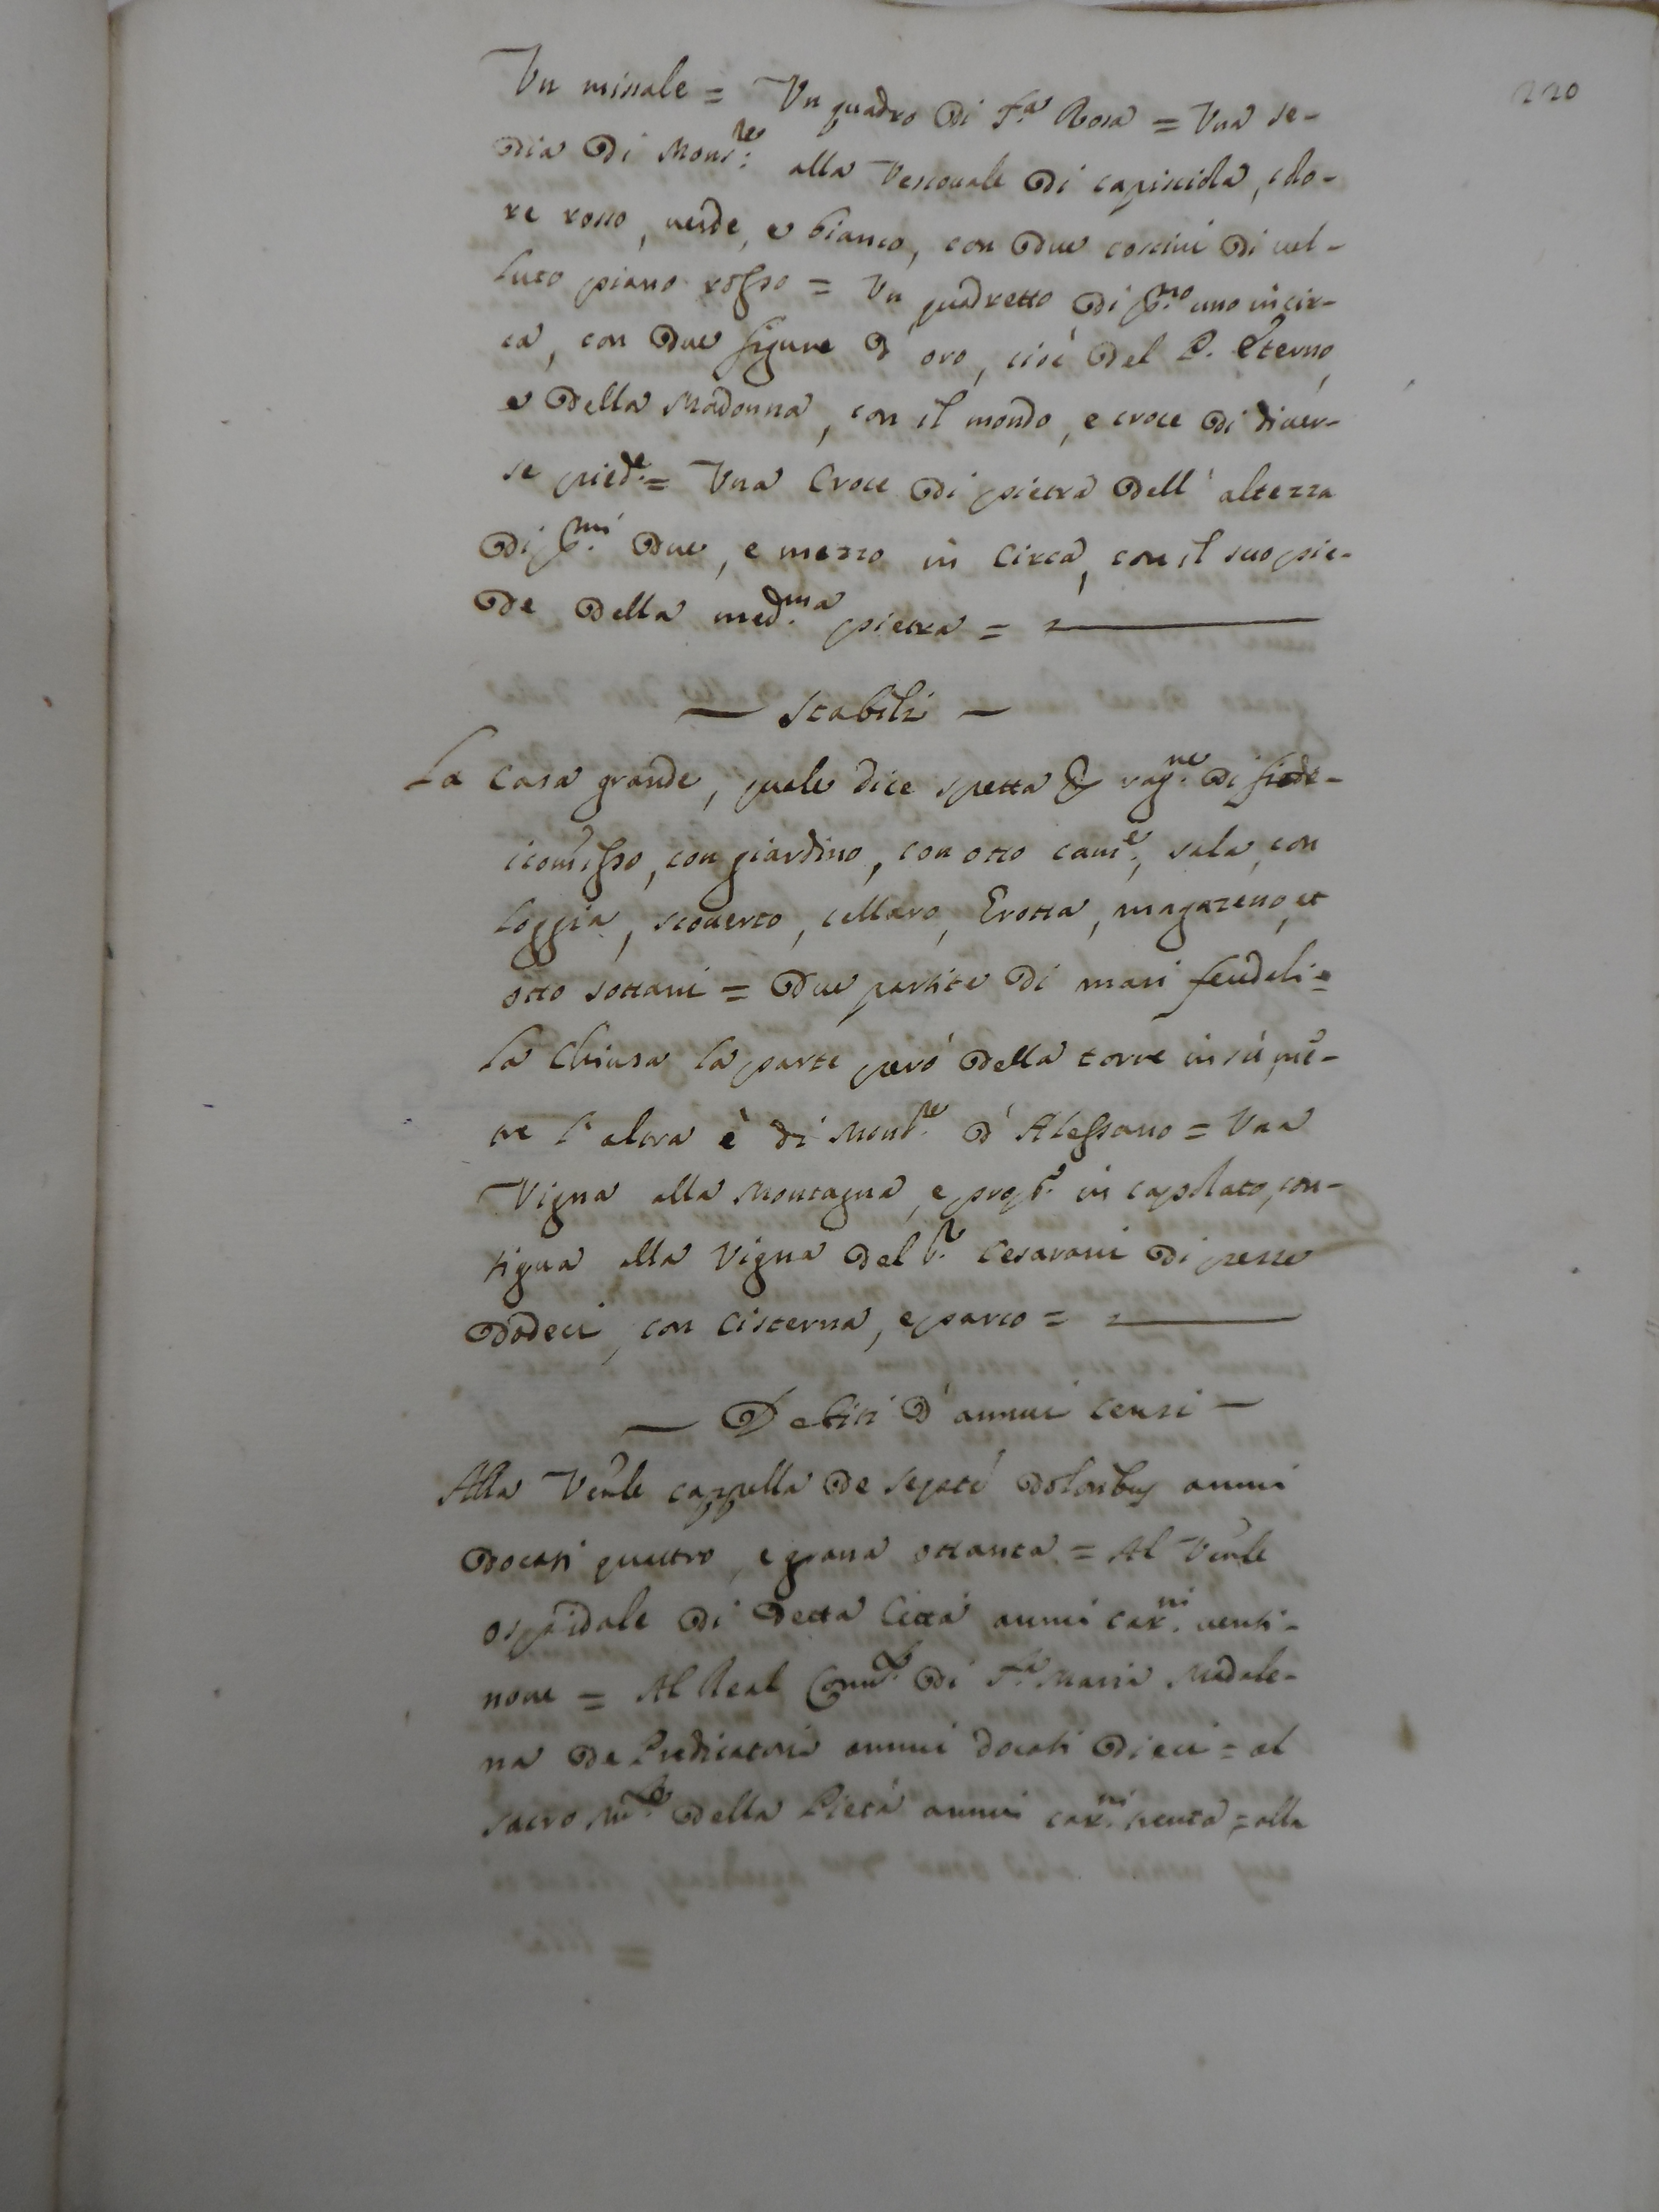 220
Un missale = Un quadro di S.ta Rosa = Una se-
dia di Mons.re alla Vescovale di capisciola, colo-
re rosso, verde, e bianco, con due coscini di vel-
luto piano rosso = Un quadretto di p.mo uno incir-
ca, con due figure d'oro, cioè del P. Eterno,
e della Madonna, con il mondo, e croce di diver-
se pied.e = Una Croce di pietra dell'altezza
di p.mi due, e mezzo in Circa, con il suo pie-
de della med.ma pietra =
— Stabili —
La Casa grande, quale dice spetta per rag.ne di fide-
icomisso, con giardino, con otto cam.e, sala, con
loggia, scoverto, cellaro, Grotta, magazeno, et
otto sottani = Due partite di mari feudali =
la Chiusa la parte però della torre in sù men-
tre l'altra è di Mons.re d'Alessano = Una
Vigna alla Montagna, e prop.e in capolato, con-
tigua alla Vigna del S.r Cesarani di pezze
dodeci, con Cisterna, e parco =
— Debiti d'annui Censi —
Alla Ven.le cappella de septe' doloribus annui
docati quattro, e grana ottanta = Al Ven.le
ospidale di detta Città annui car.ni venti-
nove = Al Real Conv.to di S.ta Maria Madale-
na de Predicatori annui docati dieci = al
sacro M.te della Pietà annui car.ni trenta = alla